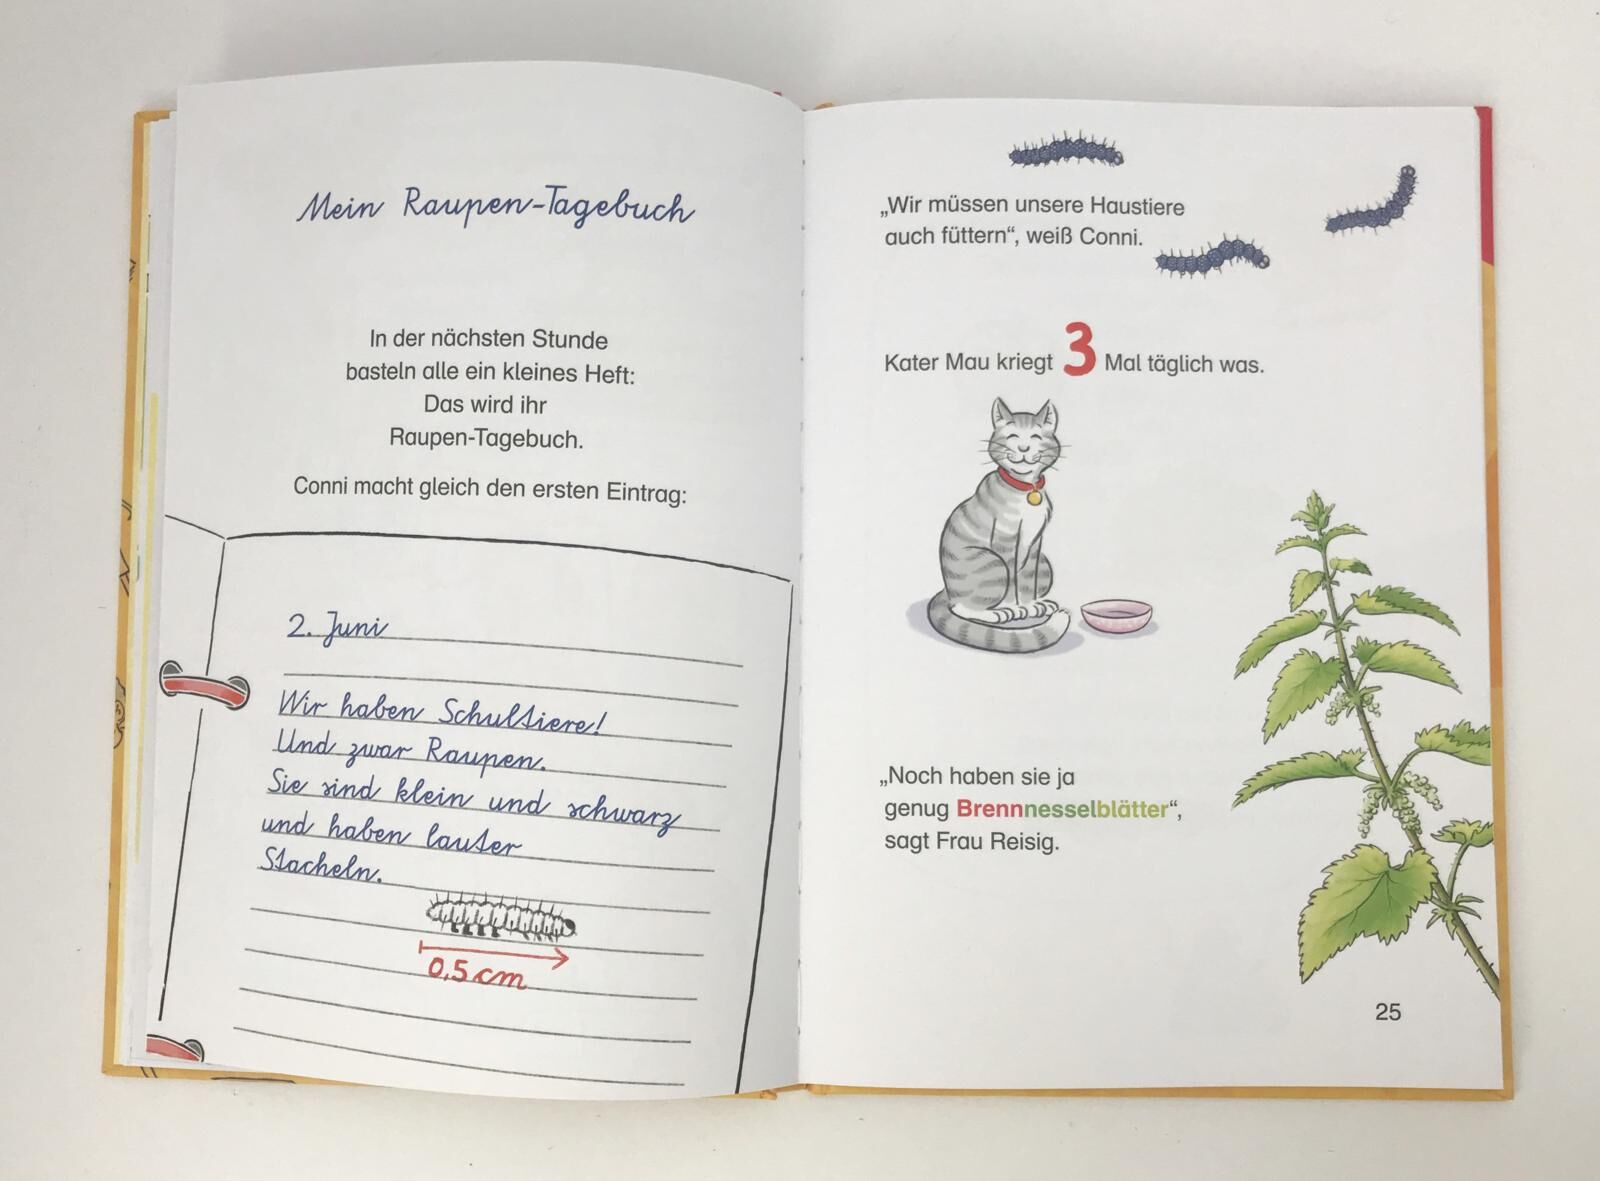 Mein Raupen-Tagebuch
In der nächsten Stunde
basteln alle ein kleines Heft:
Das wird ihr
Raupen-Tagebuch.
Conni macht gleich den ersten Eintrag:
2. Juni
Wir haben Schultiere!
Und zwar Raupen.
Sie sind klein und schwarz
und haben lauter
Stacheln.
0,5 cm
„Wir müssen unsere Haustiere
auch füttern“, weiß Conni.
Kater Mau kriegt 3 Mal täglich was.
„Noch haben sie ja
genug Brennnesselblätter“,
sagt Frau Reisig.
25